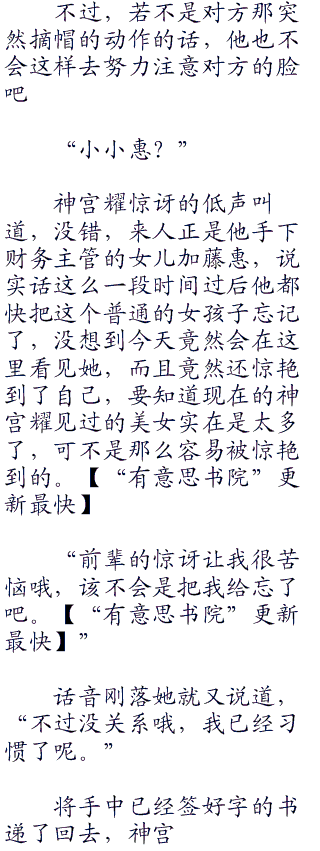 不过，若不是对方那突
然摘帽的动作的话，他也不
会这样去努力注意对方的脸
吧
“小小惠？”
神宫耀惊讶的低声叫
道，没错，来人正是他手下
财务主管的女儿加藤惠，说
实话这么一段时间过后他都
快把这个普通的女孩子忘记
了，没想到今天竟然会在这
里看见她，而且竟然还惊艳
到了自己，要知道现在的神
宫耀见过的美女实在是太多
了，可不是那么容易被惊艳
到的。【“有意思书院”更
新最快】
“前辈的惊讶让我很苦
恼哦，该不会是把我给忘了
吧。【“有意思书院”更新
最快】”
话音刚落她就又说道，
“不过没关系哦，我已经习
惯了呢。”
将手中已经签好字的书
递了回去，神宫